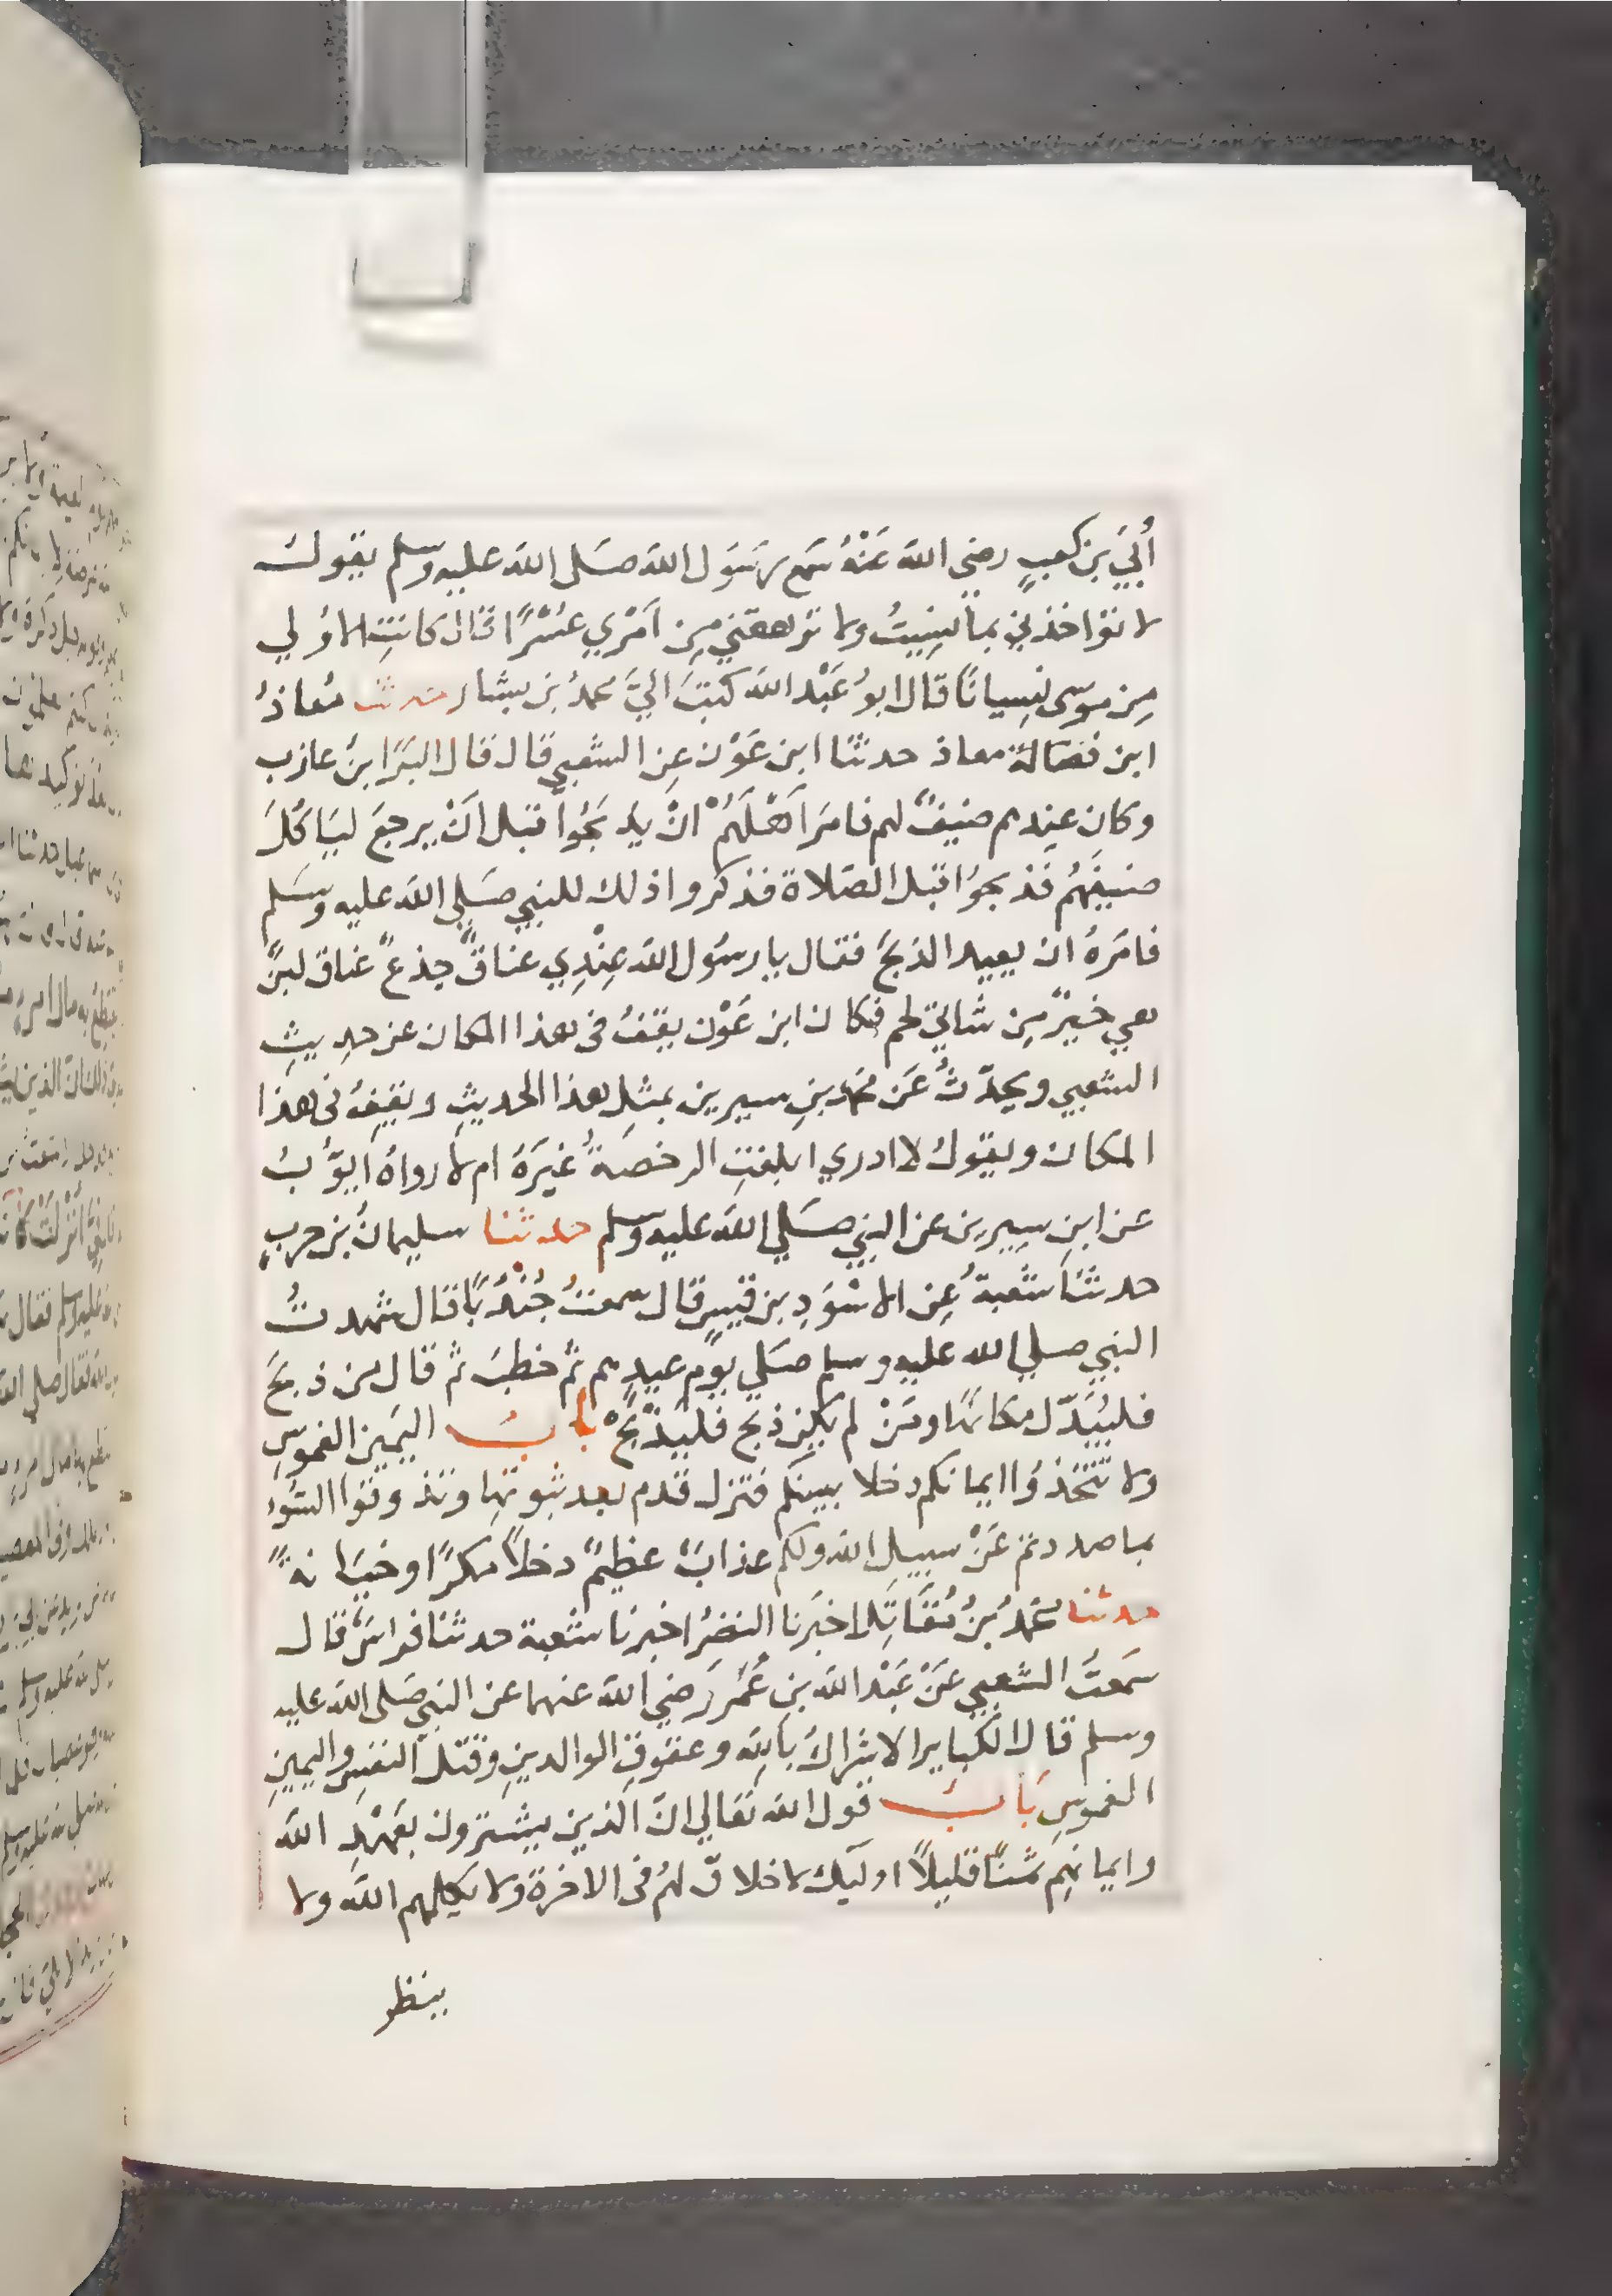 أُبَيّ بن كعبٍ رضي الله عَنْهُ سَمِعَ رَسُول الله صَلى الله عليه وسلم يقولُ
لا تؤاخذني بما نسِيتُ ولا ترهقني مِن اَمْري عُسْرًا قال كانتِ الاولي
مِن موسى نِسيانًا قال ابوُ عَبْد الله كتبَ اليَّ محمدُ بن بشار حدثنا مُعاذُ
ابن فضالة معاذ حدثنا ابن عَوْن عِن الشعبي قال قال البَرَا ابنُ عازب
وكان عِندهم ضيفٌ لهم فامَرَ اَهْلَهُمْ انْ يذبَحُوا قبل اَنْ يرجعَ ليَاكُلَ
ضيفَهُم فذبحوُا قبل الصّلاة فذكروا ذلك للنبي صَلي الله عليه وسَلم
فامَرهُ ان يعيد الذبحَ فقال يا رسُول الله عِنْدِي عناقٌ جذعٌ عَناق لبنٍ
هي خيرٌ مِن شاتي لحم فكان ابن عَوْن يقفُ في هذا المكان عن حدِيثِ
الشعبي ويحدّثُ عَن محمد بنِ سيرين بمثلِ هذا الحديثِ ويقِفُ في هذا
المكان ويقولُ لا ادري ابلغتِ الرخصةُ غيَرَهُ ام لا رواهُ ايوّبُ
عن ابنِ سِيرين عن النبي صَلي الله عليه وسلم حدثنا سليمانُ بن حربٍ
حدثنا شعبةُ عِن الاسْوَدِ بن قيسٍ قال سمعتُ جُنْدُبًا قال شهدتُ
النبي صلي الله عليه وسلم صَلي يومَ عيدٍ ثم خطبَ ثم قال من ذبحَ
فليُبَدّل مكانهَا ومَنْ لم يكن ذبح فليَذْبَحْ بابُ اليَمين الغموسِ
ولا تتّخذوُا ايمانكم دخلا بينكم فتزل قدم بعد ثبوتها وتذوقوا السّوُء
بما صددتم عَنْ سبيل الله ولكم عذابٌ عظيمٌ دخلاً مكرًا وخيَانةً
حدثنا محمدُ بنُ مُقَاتِل اخبَرنا النضرُ اخبرنا شعبة حدثنا فراسٌ قال
سَمعتُ الشعبي عَنْ عَبْد الله بنِ عُمَرَ رَضي الله عنهما عن النبي صَلى الله عليه
وسلم قال الكبايرا الاشراكُ باللهِ وعقوقِ الوالدينِ وقتلَ النفسِ واليمينِ
الغموسِ بابُ قول الله تعالي انّ الذين يشترون بعَهْدِ الله
وايمانِهم ثمنًا قليلاً اوليك لا خلاق لهمُ في الاخرة ولا يكلمهم الله ولا
ينظر